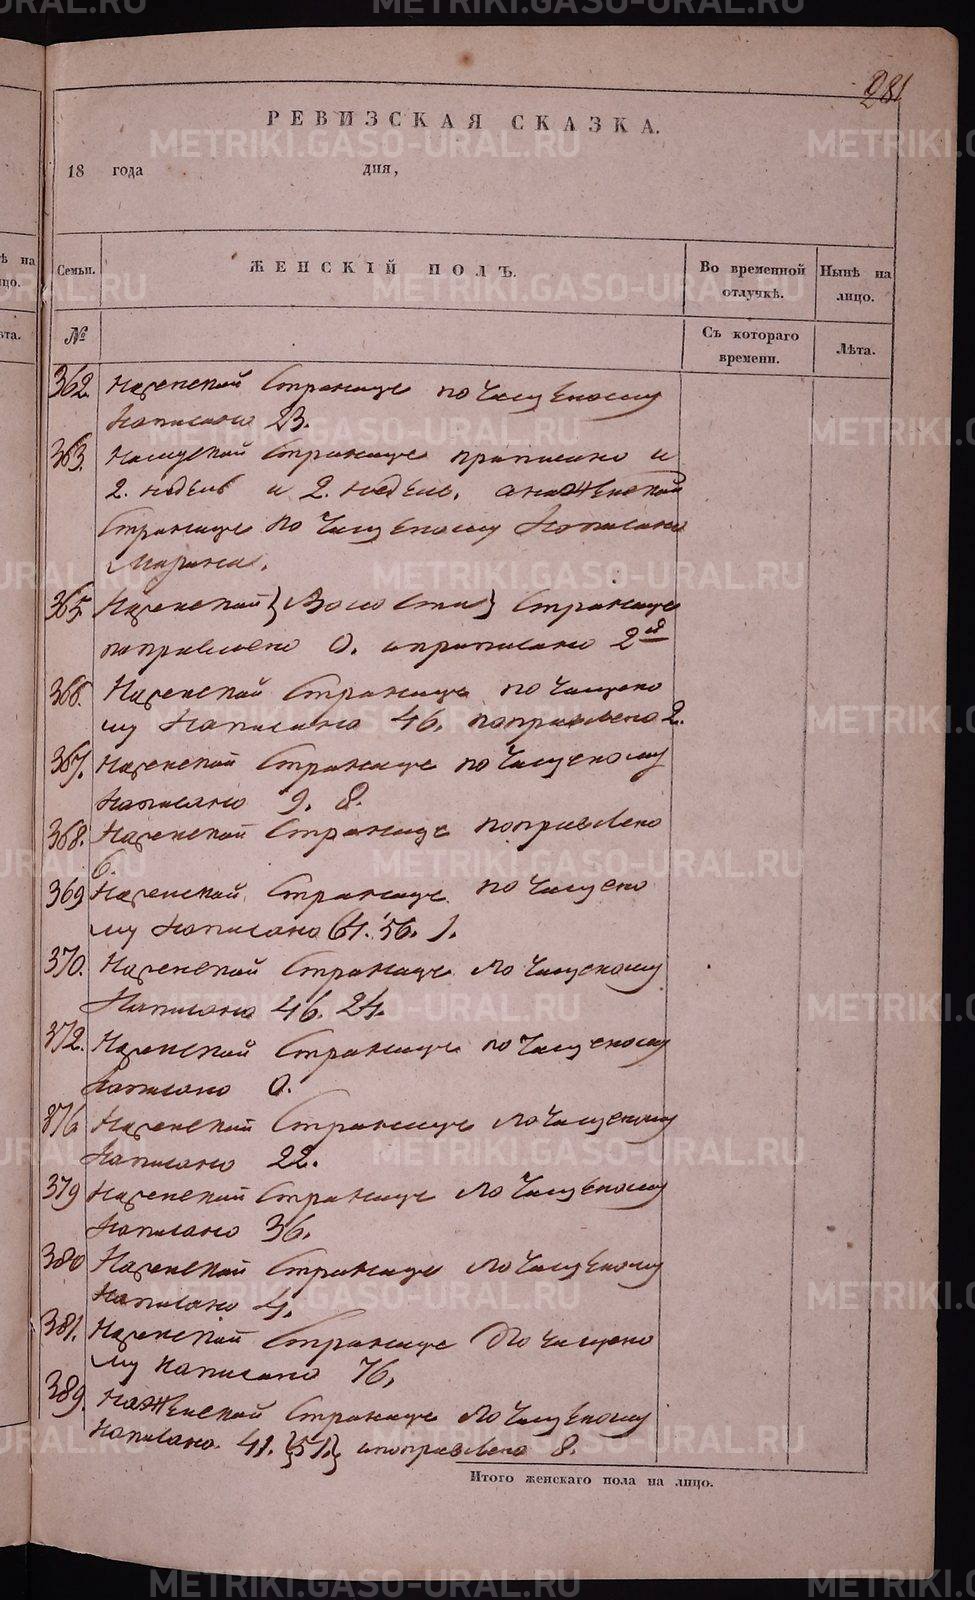 281
РЕВИЗСКАЯ СКАЗКА.
18 года дня,
Семьи. ЖЕНСКІЙ ПОЛЪ. Во временной отлучкѣ. Нынѣ на лицо.
№ Съ котораго времени. Лѣта.
362. На женской странице по чищеному
написано 23.
363. На мужской странице приписано и
2. недель и 2. недель. а на женской
странице по чищеному написано
Марина.
365. На женской странице
поправлено 0. и приписано 2
366. На женской странице по чищено
му написано 46. поправлено 2.
367. На женской странице по чищеному
написано 9. 8.
368. На женской странице поправлено
6.
369 На женской странице по чищено
му написано 61. 56. 1.
370. На женской странице по чищеному
написано 46. 24.
372. На женской странице по чищеному
написано 0.
376 На женской странице по чищеному
написано 22.
379 На женской странице по чищеному
написано 36.
380 На женской странице по чищеному
написано 4.
381. На женской странице по чищено
му написано 76,
389. На женской странице по чищеному
написано 41. {51.} и поправлено 8.
Итого женскаго пола на лицо.
METRIKI.GASO-URAL.RU